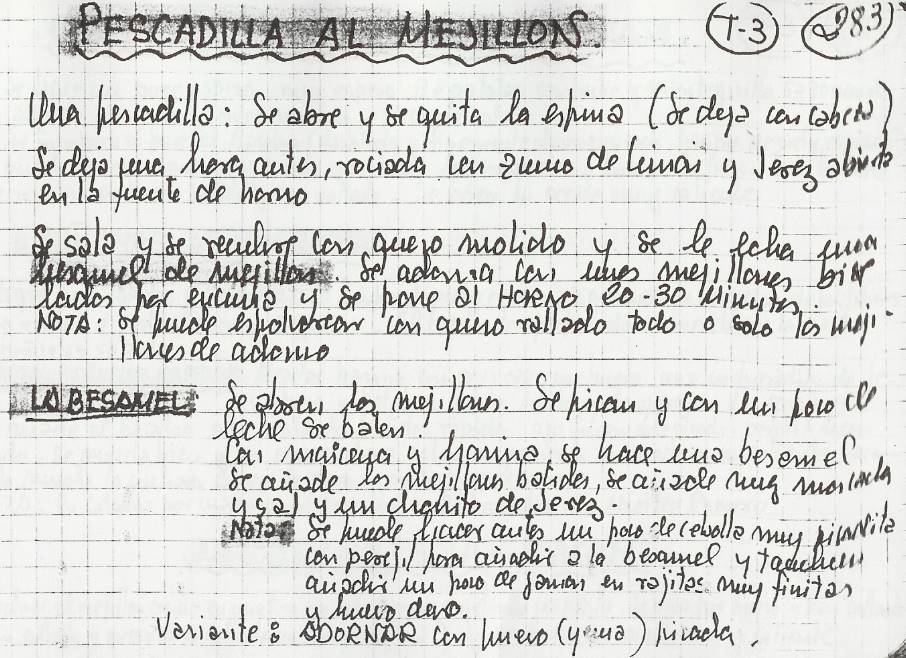 PESCADILLA AL MEJILLONS. T-3 283
Una pescadilla: Se abre y se quita la espina (Se deja con cabeza)
Se deja una hora antes, rociada con zumo de limon y Jerez abierta
en la fuente de horno
Se sala y se recubre con queso molido y se le echa una
besamel de mejillon. Se adorna con unos mejillones
por encima y se pone al HORNO 20-30 Minutos.
NOTA: Se puede espolvorear con queso rallado todo o solo los meji-
llones de adorno
LA BESAMEL: Se abren los mejillones. Se pican y con un poco de
leche se baten.
Con maicena y harina, se hace una besamel
Se añade los mejillones batidos, se añade nuez moscada
y sal y un chorrito de Jerez.
Nota: Se puede hacer antes un poco de cebolla muy picadita
con perejil para añadir a la besamel y tambien
añadir un poco de jamon en rajitas muy finitas
y huevo duro.
Variante: ADORNAR con huevo (yema) picada.